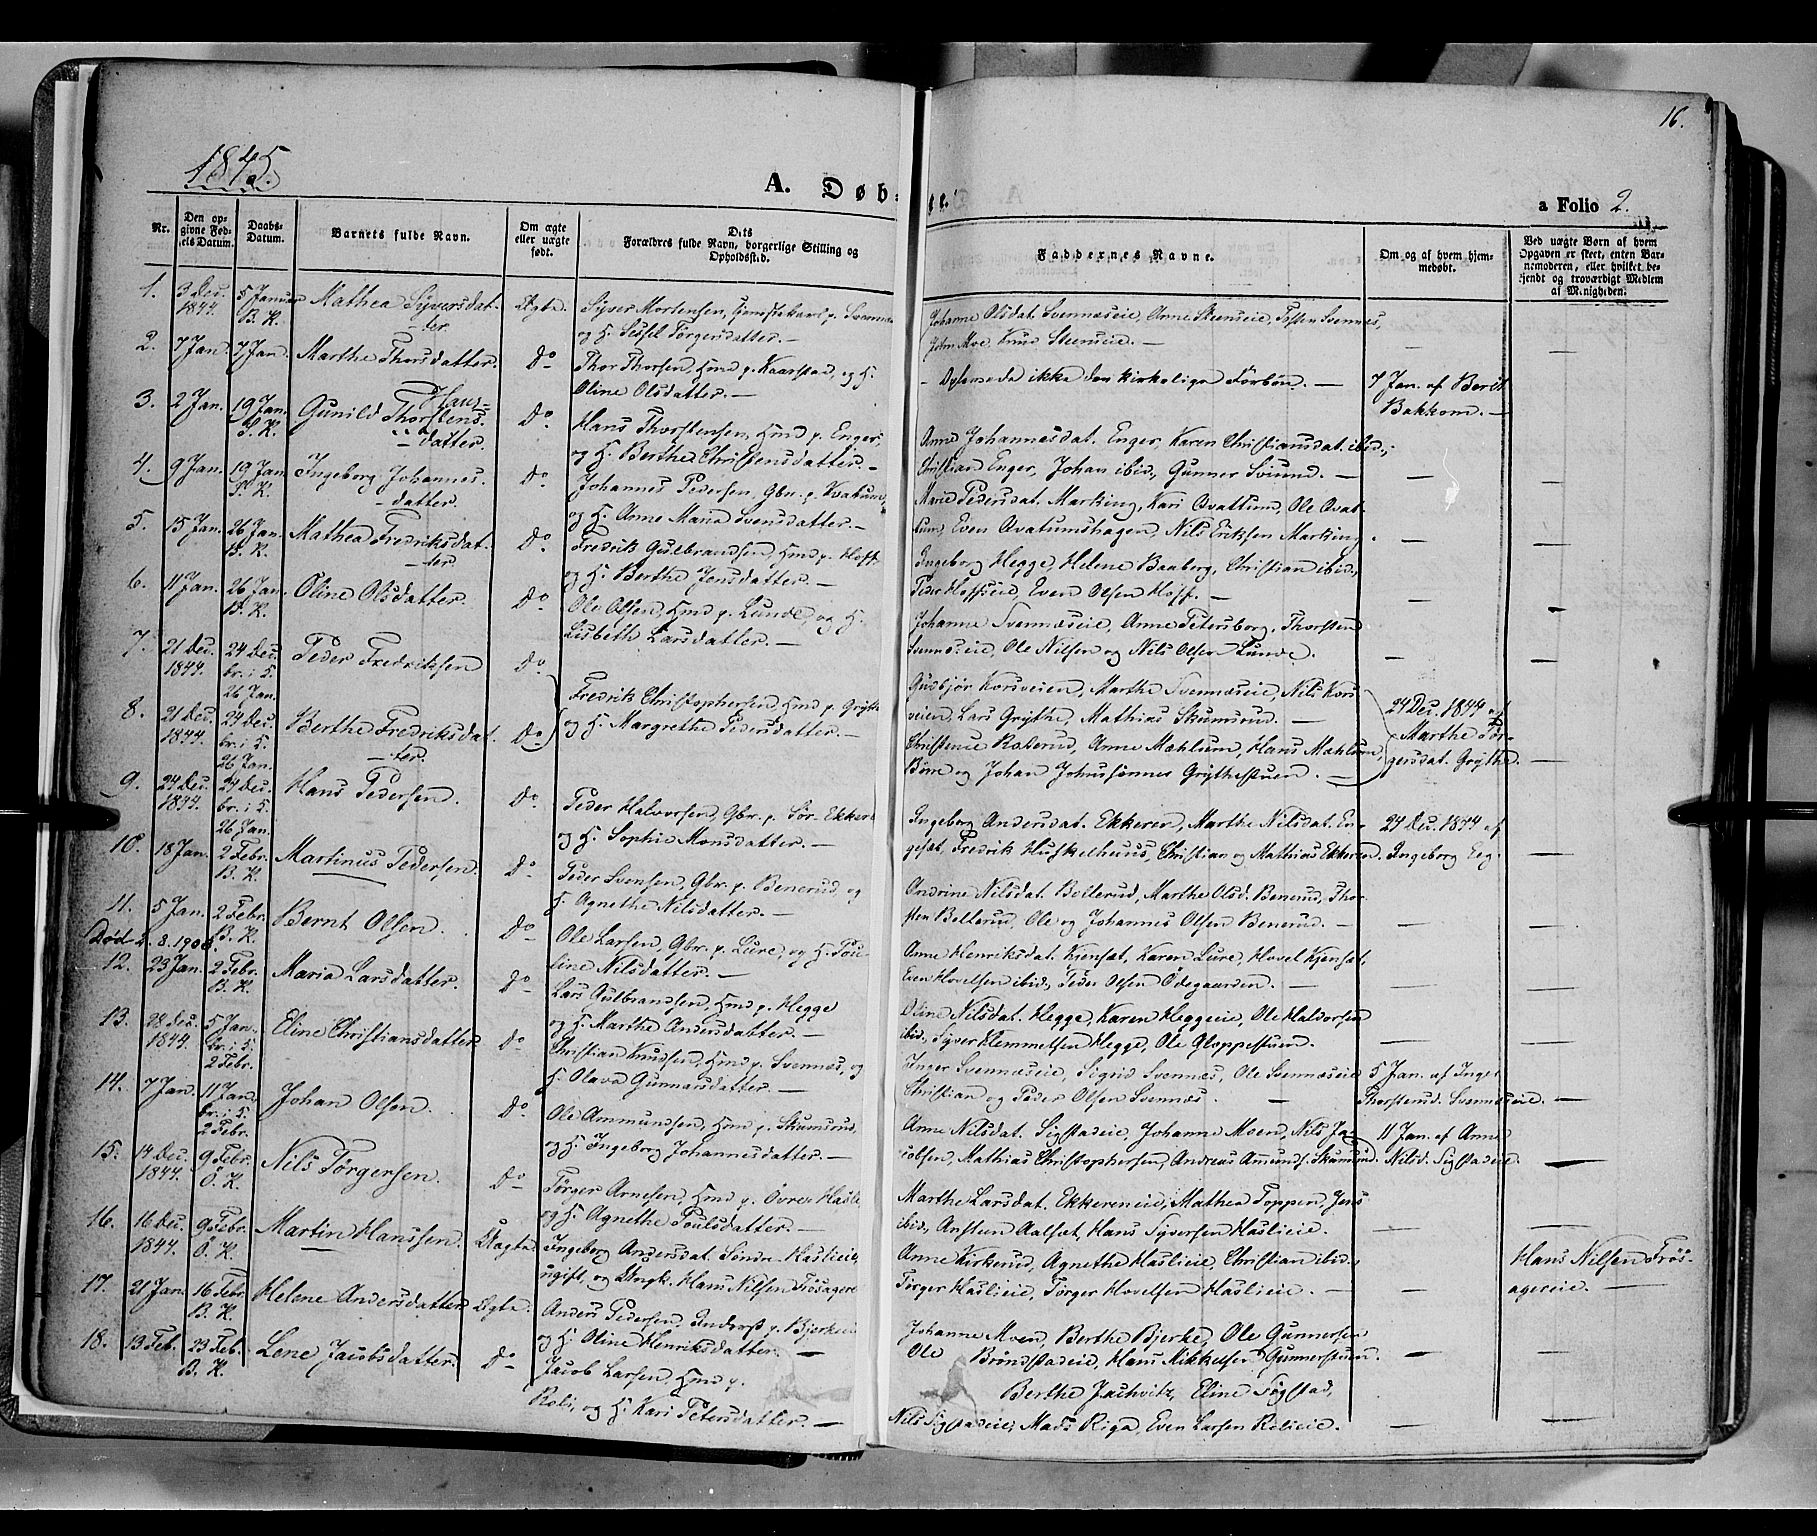 16.
1845.
A. Døb=
te.
a Folio 2.
Nr.
Den op-
givne Fød-
sels Datum.
Daabs-
Datum.
Barnets fulde Navn.
Om ægte
eller uægte
født.
Dets
Forældres fulde Navn, borgerlige Stilling og
Opholdssted.
Faddernes Navne.
Om og af hvem hjem-
medøbt.
Ved uægte Børn af hvem
Opgaven er skeet, enten Bar-
nemoderen, eller hvilket be-
kjendt og troværdigt Medlem
af Menigheden.
1. 3 Dec. 1844. 5 Januar B. K. Mathea Syversdat-
ter. Ægte. Syver Mortensen, p. Svennæs
og H. Sissel Törgersdatter. —
Johanne Olsdat. Svennæseie, Anne Steenseie, Svennes,
John Moe, Knud Steenseie. —
2. 7 Jan. 7 Jan. Marthe Thorsdatter. Do Thor Thorsen, Hmd p. Kaarstad, og H.
Oline Olsdatter. —
ikke den kirkelige Forbön. — 7 Jan. af Berit
Bakkom. —
3. 2 Jan. 19 Jan. S. K. Gunild Thorstens- Hans-
datter. Do Hans Thorstensen, Hmd p. Enger,
og H. Berthe Christensdatter. —
Anne Johannesdat. Enger, Karen Christiansdat. ibid.,
Christian Enger, Johan ibid., Gunner Sviund. —
4. 9 Jan. 19 Jan. S. K. Ingeborg Johannes-
datter. Do Johannes Pedersen, Gbr. p. Kvatum,
og H. Anne Maria Svensdatter. —
Marie Pedersdat. Marking, Kari Qvattum, Ole Qvat-
tum, Even Qvatumshagen, Nils Eriksen Marking.
5. 15 Jan. 26 Jan. B. K. Mathea Fredriksdat-
ter. Do Fredrik Gulbrandsen, Hmd p. Hoff,
og H. Berthe Jensdatter. —
Ingeborg Hegge, Helene Baaberg, Christian ibid.,
Peder Hoffseie, Even Olsen Hoff. —
6. 11 Jan. 26 Jan. B. K. Oline Olsdatter. Do Ole Olsen, Hmd p. Lunde, og H.
Lisbeth Larsdatter. —
Johanne Svennæseie, Anne Petersborg, Thorsten
Svennæseie, Ole Nilsen og Nils Olsen Lunde.
7. 21 Dec. 1844. 24 Dec. br. i S. 26 Jan. Peder Fredriksen Do
Fredrik Christophersen, Hmd p. Grythe
og H. Margrethe Pedersdatter. —
Gudbjör Korsveien, Marthe Svennæseie, Nils Kors-
veien, Lars Grythe, Mathias Skumsrud. —
24 Dec. 1844 af
Marthe Tör-
gersdat. Grythe.
8. 21 Dec. 1844. 24 Dec. br. i S. 26 Jan. Berthe Fredriksdat-
ter. Do
Christense Raterud, Anne Mæhlum, Hans Mæhlum,
og Johan Grythestuen. —
9. 24 Dec. 1844. 24 Dec. br. i S. 26 Jan. Hans Pedersen. Do Peder Halvorsen, Gbr. p. Sör Ekkeren
og H. Sophie Monsdatter. —
Ingeborg Andersdat. Ekkeren, Marthe Nilsdat. En-
gesæt, Fredrik Huskelhuus, Christian og Mathias Ekkeren. 24 Dec. 1844 af
Ingeborg Eeg.
10. 18 Jan. 2 Febr. B. K. Martinus Pedersen. Do Peder Svensen, Gbr. p. Benerud, og
H. Agnethe Nilsdatter. —
Andrine Nilsdat. Bollerud, Marthe Olsd. Benerud, Thor-
sten Bollerud, Ole og Johannes Olsen Benerud. —
11. 5 Jan. 2 Febr. B. K. Bernt Olsen. Do Ole Larsen, Gbr. p. Lure, og H. Pau-
line Nilsdatter. —
Død 8. 1908
Anne Henriksdat. Kjensæt, Karen Lure, Hovel Kjensæt,
Even Hovelsen ibid., Peder Olsen Ödegaarden. —
12. 23 Jan. 2 Febr. B. K. Maria Larsdatter. Do Lars Gulbrandsen, Hmd p. Hegge
og H. Marthe Andersdatter. —
Oline Nilsdat. Hegge, Karen Heggeeie, Ole Haldorsen
ibid., Syver Klemmetsen Hegge, Ole Gloppestuen. —
13. 28 Dec. 1844. 5 Jan. br. i S. 2 Febr. Eline Christiansdatter Do Christian Knudsen, Hmd p. Svennæs, og
H. Olava Gunnarsdatter. —
Inger Svennæseie, Sigrid Svennæs, Ole Svennæseie
Christian og Peder Olsen Svennæs. — 5 Jan. af Inger
Thorstensd. Svennæseie.
14. 7 Jan. 11 Jan. br. i S. 2 Febr. Johan Olsen. Do Ole Ammundsen, Hmd p. Skumsrud,
og H. Ingeborg Johannesdatter. —
Anne Nilsdat. Sigstadeie, Johanne Moen, Nils Ja-
cobsen, Mathias Christophersen, Andreas Amunds. Skumsrud. 11 Jan. af Anne
Nilsd. Sigstadeie.
15. 14 Dec. 1844. 9 Febr. Ö. K. Nils Törgersen. Do Törger Arnesen, Hmd p. Övre Hasle,
og H. Agnethe Poulsdatter. —
Marthe Larsdat. Ekkereneie, Mathea Toppen, Jens
ibid., Arnsten Aalsæt, Hans Syversen Haslieie.
16. 16 Dec. 1844. 9 Febr. Ö. K. Martin Hanssen. Uægte Ingeborg Andersdat. Söndre Haslieie,
ugift, og Ungk. Hans Nilsen Frösagere
Anne Kirkerud, Agnethe Haslieie, Christian ibid.,
Törger Haslieie, Törger Hovelsen Haslieie. — Hans Nilsen Frös-
agereie. —
17. 21 Jan. 16 Febr. B. K. Helene Andersdatter Ægte. Anders Pedersen, Inderst p. Bjerkeeie
og H. Oline Henriksdatter. —
Johanne Moen, Berthe Bjerke, Ole Gunnersen
Ole Bröndstadeie, Hans Mikkelsen Gunnerstuen.
18. 13 Feb. 23 Feb. B. K. Lene Jacobsdatter. Do Jacob Larsen, Hmd p.
Roli, og H. Kari Petersdatter. —
Berthe Jachvitz, Eline Sigstad,
Nils Sigstadeie, Mads Riga, Even Larsen Rolieie. —